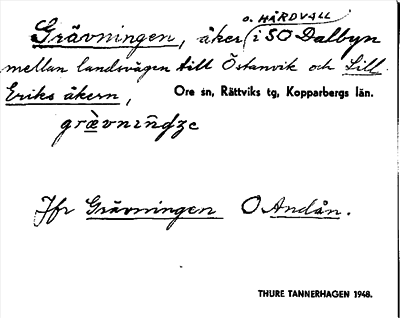 o. HÅRDVALL
Grävningen, åker (i SO Dalbyn
mellan landsvägen till Östanvik och Lill
Eriks åkern, Ore sn, Rättviks tg, Kopparbergs län.
Jfr Grävningen O Andån.
THURE TANNERHAGEN 1948.